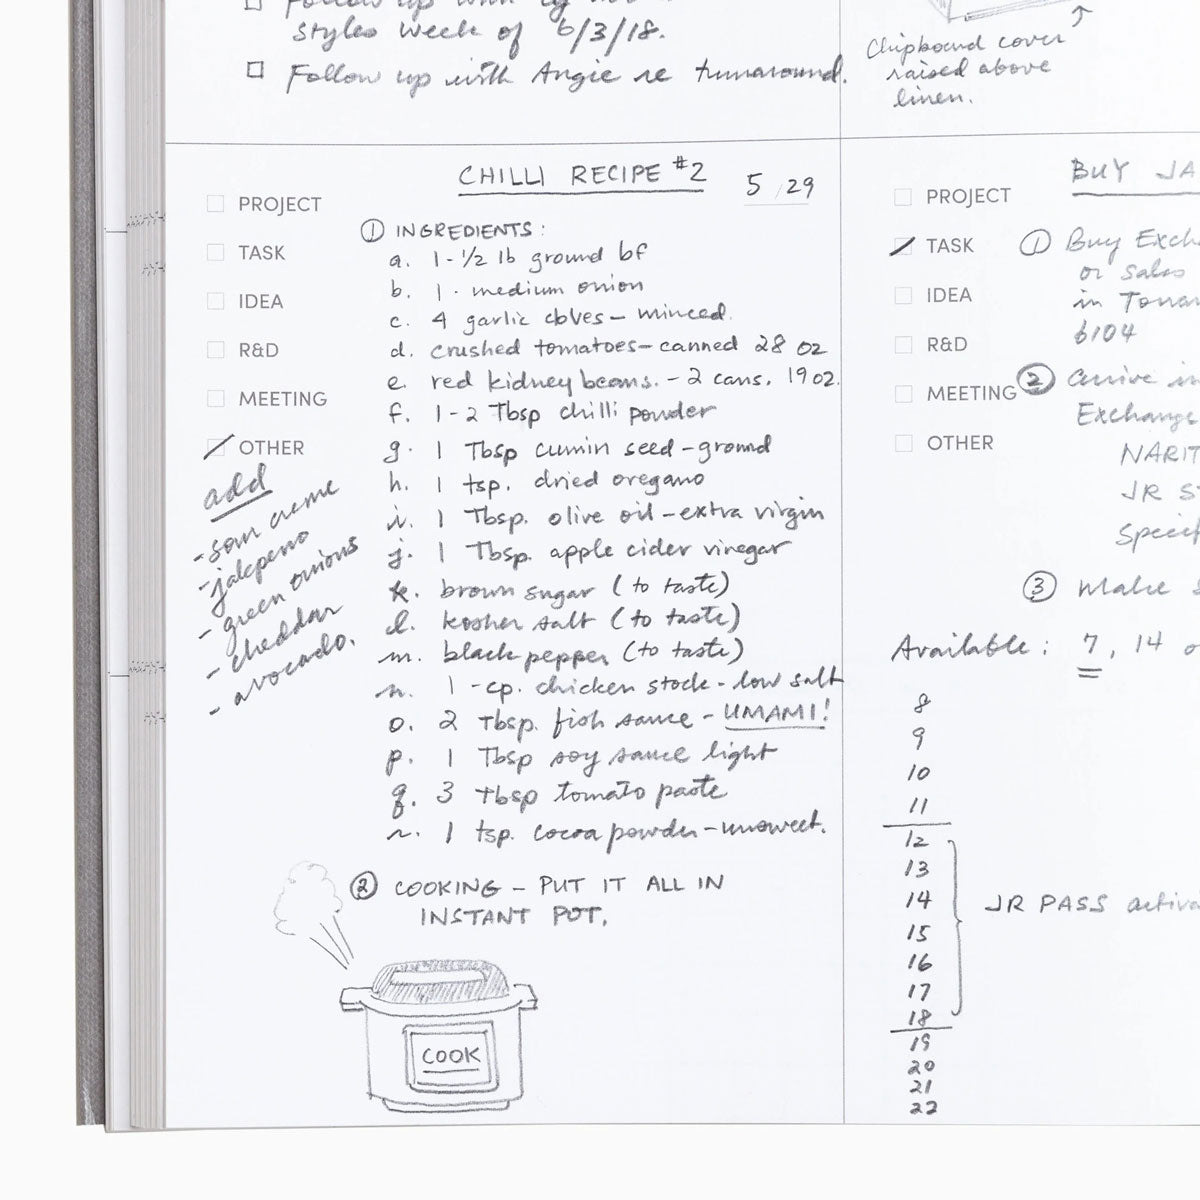 Follow up with
styles week of 6/3/18.
Follow up with Angie re turnaround.
Chipboard cover
raised above
linen.
CHILLI RECIPE #2 5/29
PROJECT
TASK
IDEA
R&D
MEETING
OTHER
add
- sour creme
- jalepeno
- green onions
- cheddar
- avocado.
① INGREDIENTS:
a. 1-1/2 lb ground bf
b. 1 - medium onion
c. 4 garlic cloves - minced.
d. crushed tomatoes - canned 28 oz
e. red kidney beans. - 2 cans. 19 oz.
f. 1-2 Tbsp chilli powder
g. 1 Tbsp cumin seed - ground
h. 1 tsp. dried oregano
i. 1 Tbsp. olive oil - extra virgin
j. 1 Tbsp. apple cider vinegar
k. brown sugar (to taste)
l. kosher salt (to taste)
m. black pepper (to taste)
n. 1 - cp. chicken stock - low salt
o. 2 Tbsp. fish sauce - UMAMI!
p. 1 Tbsp soy sauce light
q. 3 Tbsp tomato paste
r. 1 tsp. cocoa powder - unsweet.
② COOKING - PUT IT ALL IN
INSTANT POT.
COOK
BUY JA
PROJECT
TASK
IDEA
R&D
MEETING
OTHER
① Buy Exch
or sales
in Toron
6104
② arrive in
Exchange
NARIT
JR S
Specif
③ Make s
Available: 7, 14 o
8
9
10
11
12
13
14
15
16
17
18
19
20
21
22
JR PASS activa